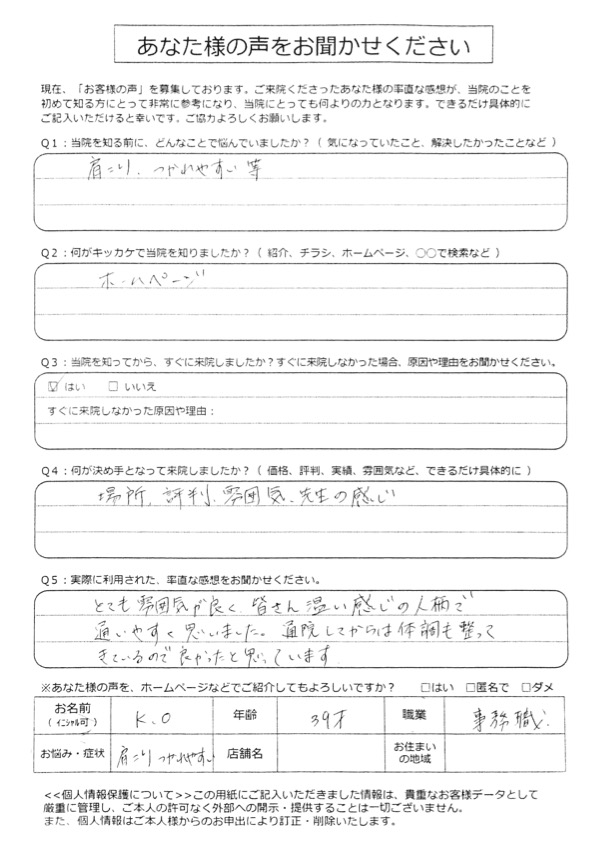 あなた様の声をお聞かせください
現在、「お客様の声」を募集しております。ご来院くださったあなた様の率直な感想が、当院のことを
初めて知る方にとって非常に参考になり、当院にとっても何よりの力となります。できるだけ具体的に
ご記入いただけると幸いです。ご協力よろしくお願いします。
Q1：当院を知る前に、どんなことで悩んでいましたか？（ 気になっていたこと、解決したかったことなど ）
肩こり、つかれやすい 等
Q2：何がキッカケで当院を知りましたか？（ 紹介、チラシ、ホームページ、○○で検索など ）
ホームページ
Q3：当院を知ってから、すぐに来院しましたか？すぐに来院しなかった場合、原因や理由をお聞かせください。
☑はい　□ いいえ
すぐに来院しなかった原因や理由：
Q4：何が決め手となって来院しましたか？（ 価格、評判、実績、雰囲気など、できるだけ具体的に ）
場所、評判、雰囲気、先生の感じ
Q5：実際に利用された、率直な感想をお聞かせください。
とても雰囲気が良く、皆さん温い感じの人柄で
通いやすく思いました。通院してからは体調も整って
きているので良かったと思っています
※あなた様の声を、ホームページなどでご紹介してもよろしいですか？　□はい　□匿名で　□ダメ
お名前（イニシャル可）　K.O　年齢　39才　職業　事務職
お悩み・症状　肩こり つかれやすい　店舗名　お住まいの地域
<<個人情報保護について>>この用紙にご記入いただきました情報は、貴重なお客様データとして
厳重に管理し、ご本人の許可なく外部への開示・提供することは一切ございません。
また、個人情報はご本人様からのお申出により訂正・削除いたします。